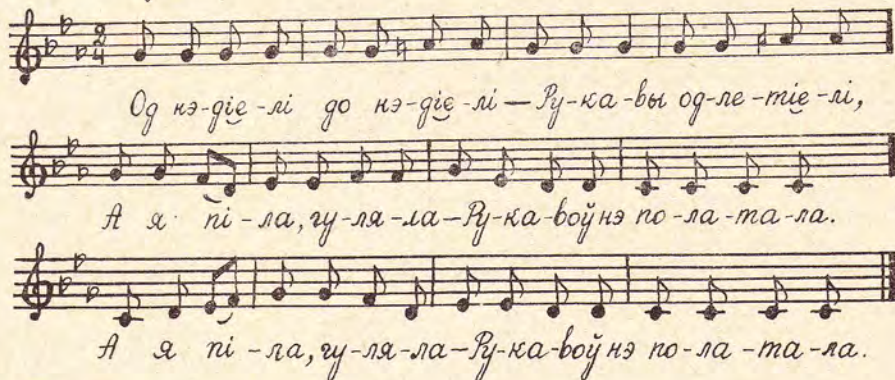 2
4
Од нэ-діе-лі до нэ-діе-лі — Ру-ка-вы од-ле-тіе-лі,
А я пі-ла, гу-ля-ла — Ру-ка-воў нэ по-ла-та-ла.
А я пі-ла, гу-ля-ла — Ру-ка-воў нэ по-ла-та-ла.